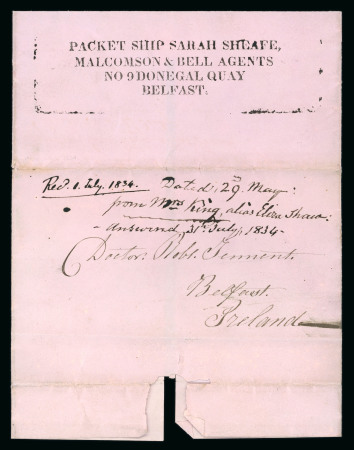 PACKET SHIP SARAH SHEAFE,
MALCOMSON & BELL AGENTS
NO 9 DONEGAL QUAY
BELFAST.
Recd. 1. July. 1834. Dated: 29. May:
from Mrs King, alias Eliza Shaw:
- answered, 31st July, 1834 -
Doctor: Robt. Tennent.
Belfast.
Ireland